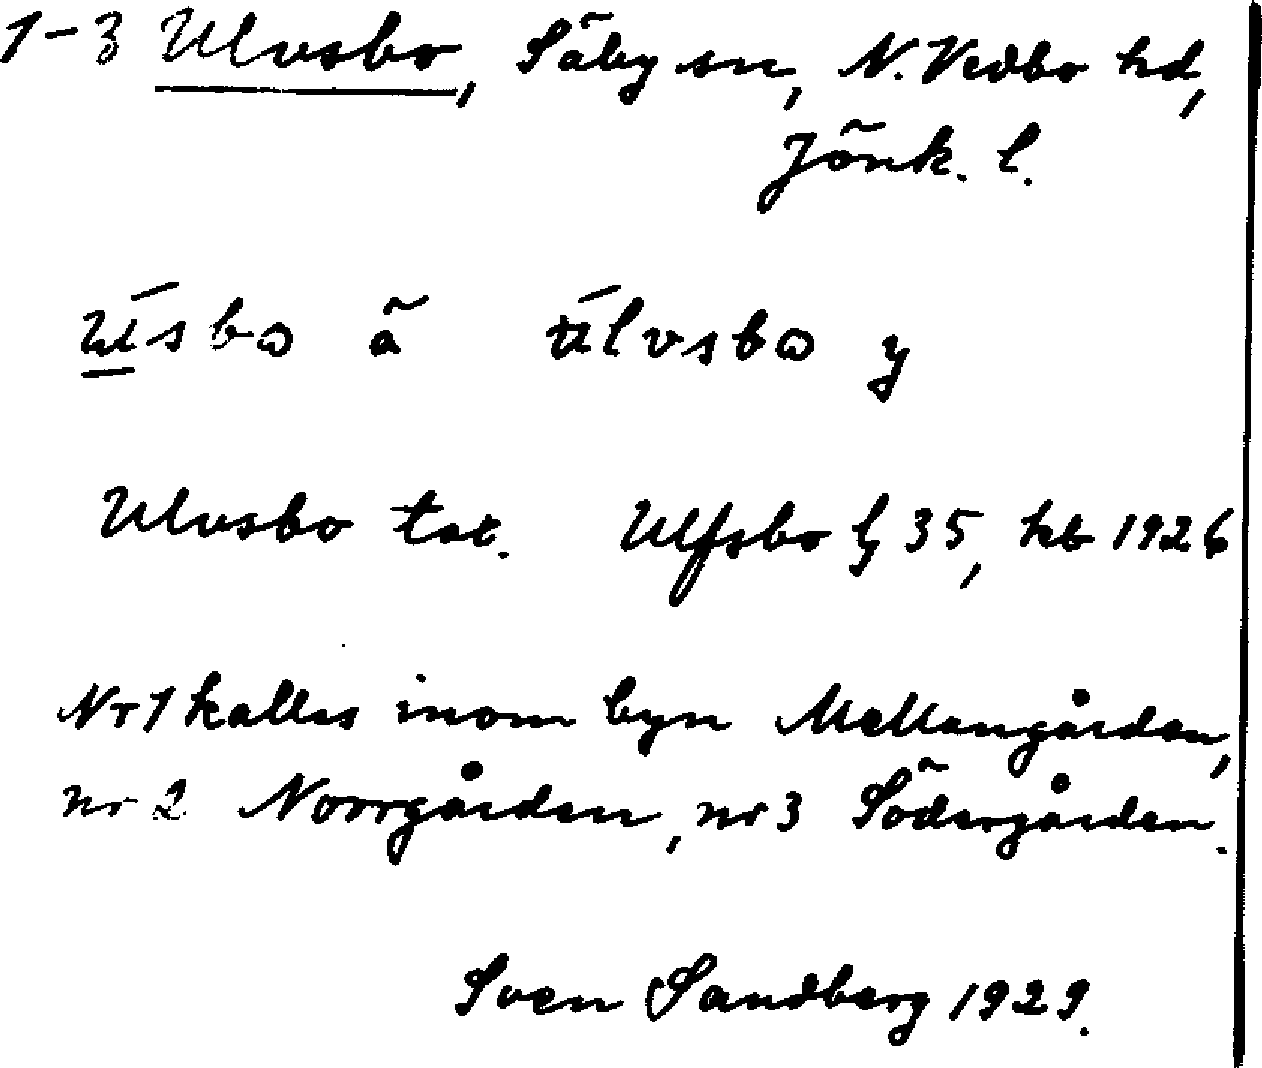 1-3 Ulvsbo, Säby sn, N. Vedbo hd,
Jönk. l.
úsbɷ ä úlvsbɷ y
Ulvsbo tst. Ulfsbo § 35, kb 1926
Nr 1 kallas inom byn Mellangården,
nr 2 Norrgården, nr 3 Södergården.
Sven Sandberg 1929.